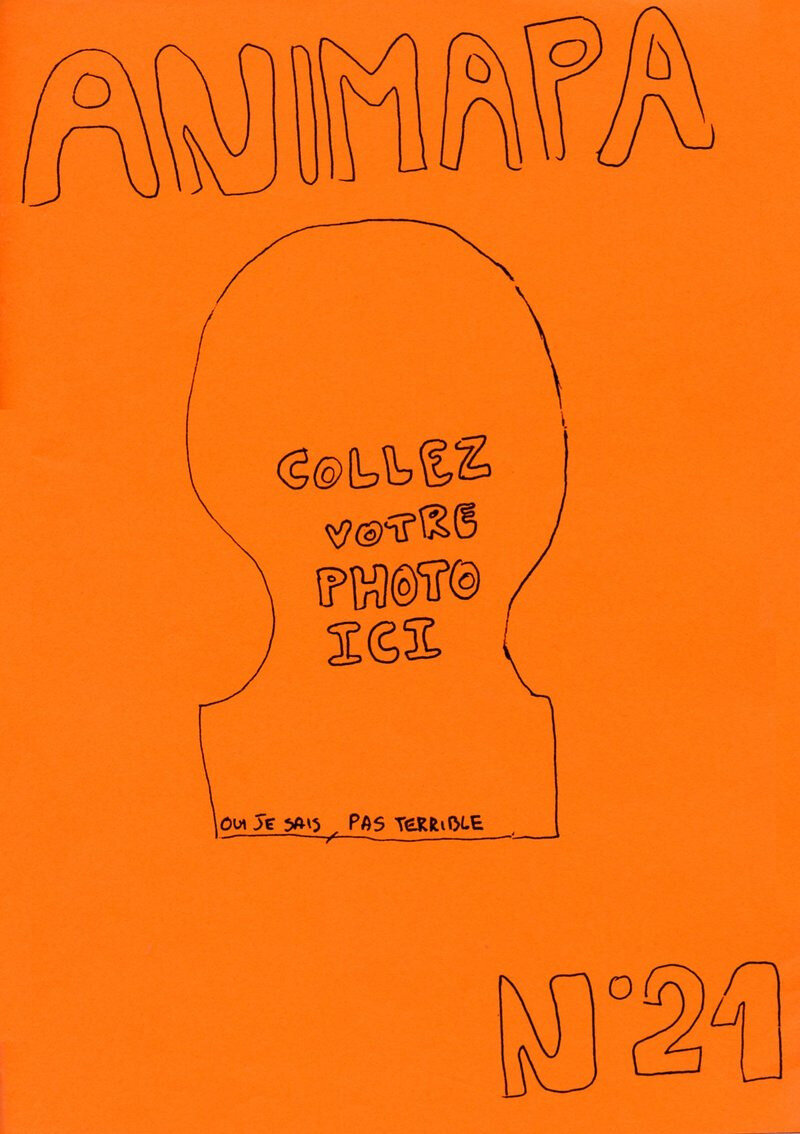 ANIMAPA
COLLEZ
VOTRE
PHOTO
ICI
OUI JE SAIS, PAS TERRIBLE
N°21